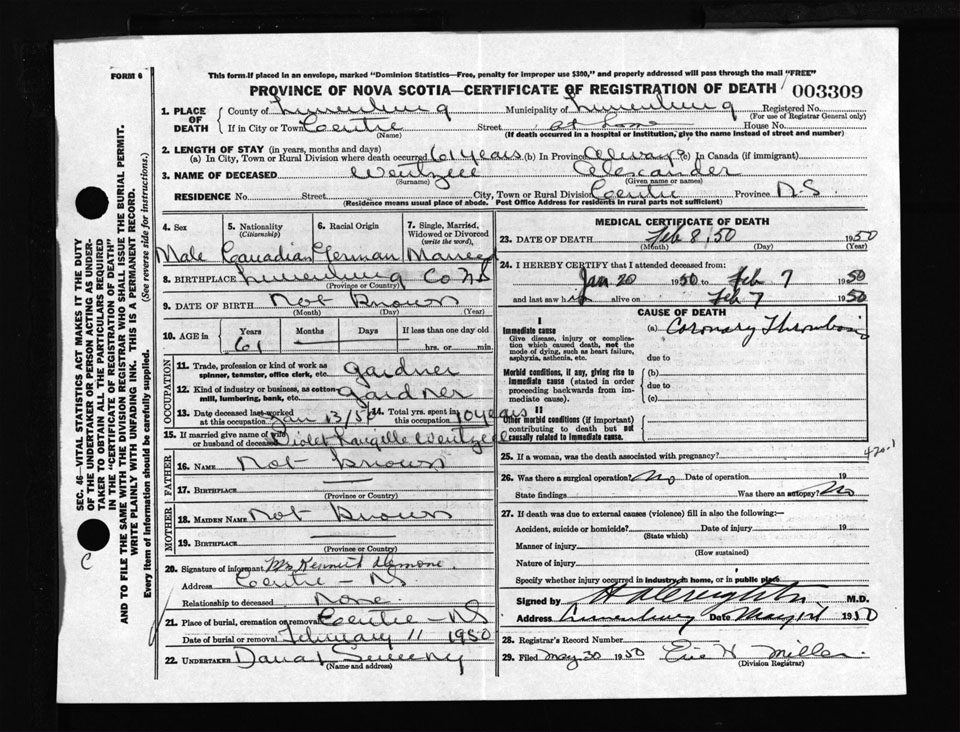 This form if placed in an envelope, marked "Dominion Statistics—Free, penalty for improper use $300," and properly addressed will pass through the mail "FREE"
FORM 6
PROVINCE OF NOVA SCOTIA—CERTIFICATE OF REGISTRATION OF DEATH 003309
SEC. 46—VITAL STATISTICS ACT MAKES IT THE DUTY
OF THE UNDERTAKER OR PERSON ACTING AS UNDER-
TAKER TO OBTAIN ALL THE PARTICULARS REQUIRED
IN THE "CERTIFICATE OF REGISTRATION OF DEATH"
AND TO FILE THE SAME WITH THE DIVISION REGISTRAR WHO SHALL ISSUE THE BURIAL PERMIT.
WRITE PLAINLY WITH UNFADING INK. THIS IS A PERMANENT RECORD.
Every item of information should be carefully supplied. (See reverse side for instructions.)
C
1. PLACE OF DEATH
County of Lunenburg Municipality of Lunenburg Registered No.
(For use of Registrar General only)
If in City or Town Centre Street House No.
(Name) (If death occurred in a hospital or institution, give the name instead of street and number)
2. LENGTH OF STAY (in years, months and days)
(a) In City, Town or Rural Division where death occurred 61 years (b) In Province Always (c) In Canada (if immigrant)
3. NAME OF DECEASED Wentzell Alexander
(Surname) (Given name or names)
RESIDENCE No. Street City, Town or Rural Division Centre Province N.S.
(Residence means usual place of abode. Post Office Address for residents in rural parts not sufficient)
4. Sex 5. Nationality (Citizenship) 6. Racial Origin 7. Single, Married, Widowed or Divorced (write the word)
Male Canadian German Married
8. BIRTHPLACE Lunenburg Co NS
(Province or Country)
9. DATE OF BIRTH Not Known
(Month) (Day) (Year)
10. AGE in Years Months Days If less than one day old
61 hrs. or min.
OCCUPATION
11. Trade, profession or kind of work as spinner, teamster, office clerk, etc. gardner
12. Kind of industry or business, as cotton mill, lumbering, bank, etc. gardner
13. Date deceased last worked at this occupation Jan 13/50 14. Total yrs. spent in this occupation 40 years
15. If married give name of wife or husband of deceased Violet Wentzell
FATHER
16. NAME Not Known
17. BIRTHPLACE
(Province or Country)
MOTHER
18. MAIDEN NAME Not Known
19. BIRTHPLACE
(Province or Country)
20. Signature of informant Mrs Kenneth Demone
Address Centre - NS
Relationship to deceased None
21. Place of burial, cremation or removal Centre - NS
Date of burial or removal February 11 1950
22. UNDERTAKER Sweeny
(Name and address)
MEDICAL CERTIFICATE OF DEATH
23. DATE OF DEATH Feb 8, 50 1950
(Month) (Day)
24. I HEREBY CERTIFY that I attended deceased from:
Jan 20 1950 to Feb 7 1950
and last saw him alive on Feb 7 1950
CAUSE OF DEATH
I
Immediate cause (a) Coronary Thrombosis
Give disease, injury or complica-
tion which caused death, not the
mode of dying, such as heart failure,
asphyxia, asthenia, etc. due to
Morbid conditions, if any, giving rise to (b)
immediate cause (stated in order due to
proceeding backwards from im-
mediate cause). (c)
II
Other morbid conditions (if important)
contributing to death but not
causally related to immediate cause.
420.1
25. If a woman, was the death associated with pregnancy?
26. Was there a surgical operation? No Date of operation 19
State findings Was there an autopsy? No
27. If death was due to external causes (violence) fill in also the following:—
Accident, suicide or homicide? Date of injury 19
(State which)
Manner of injury
(How sustained)
Nature of injury
Specify whether injury occurred in industry, in home, or in public place
Signed by H A Creighton M.D.
Address Lunenburg Date May 1950
28. Registrar's Record Number
29. Filed May 30 1950 Evie H Miller
(Division Registrar)